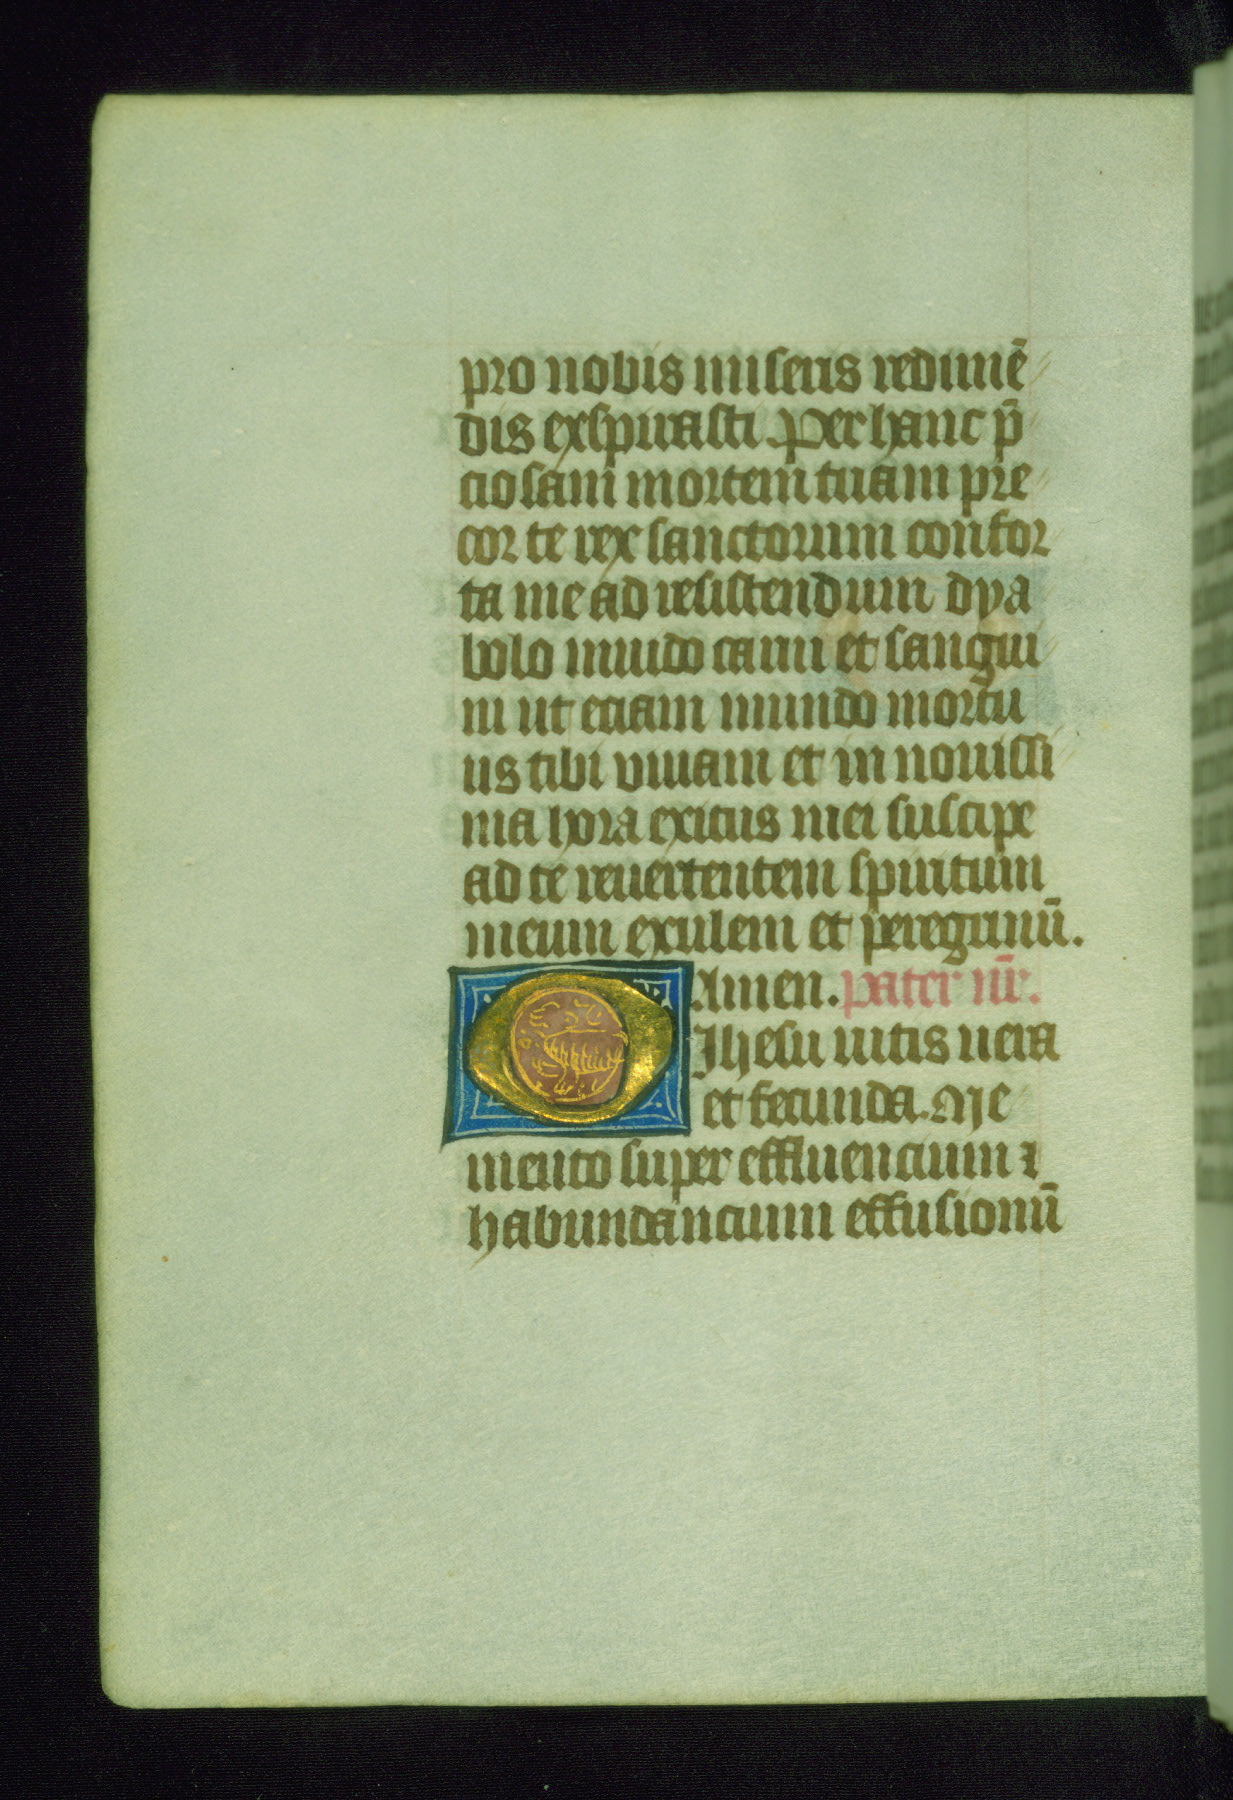 pro nobis miseris redimē
dis exspirasti. Per hanc p̄
ciosam mortem tuam pre
cor te rex sanctorum confor
ta me ad resistendum dya
bolo mundo carni et sangui
ni ut eciam mundo mortu
us tibi viuam et in nouissi
ma hora exitus mei suscipe
ad te reuertentem spiritum
meum exulem et peregrinū.
Amen. Pater nr̄.
O Jhesu uitis uera
et fecunda. Me
mento super effluencium ⁊
habundancium effusionū